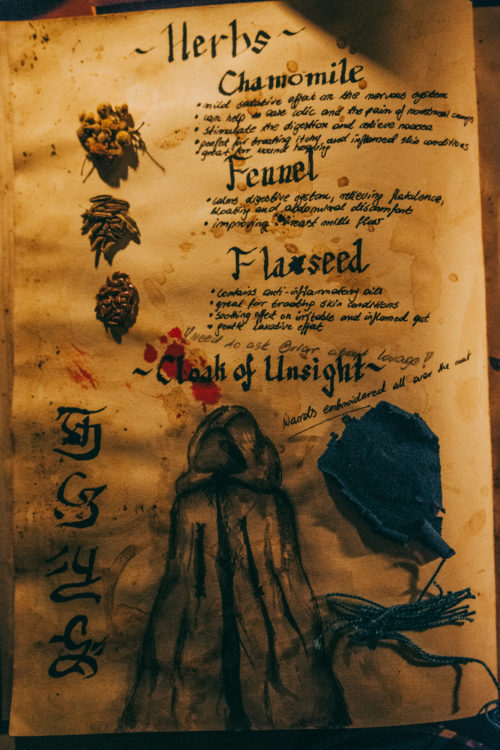 ~ Herbs ~
Chamomile
• mild sedative effect on the nervous system
• can help to ease colic and the pain of menstrual cramps
• stimulate the digestion and relieve nausea
• perfect for treating itchy and inflamed skin conditions
• great for wound healing
Fennel
• calms digestive system, relieving flatulence,
bloating and abdominal discomfort
• improving breast milk flow
Flaxseed
• contains anti-inflammatory oils
• great for treating skin conditions
• soothing effect on irritable and inflamed gut
• gentle laxative effect
!need to ask Briar about lovage!
~ Cloak of Unsight ~
Wards embroidered all over the coat